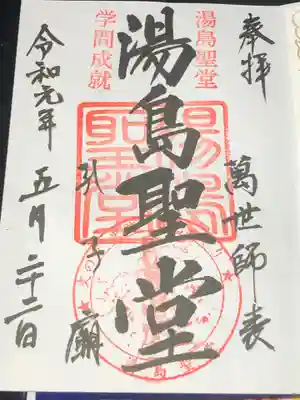 奉拝
萬世師表
湯島聖堂
湯島聖堂
孔子廟
学問成就
令和元年五月二十二日